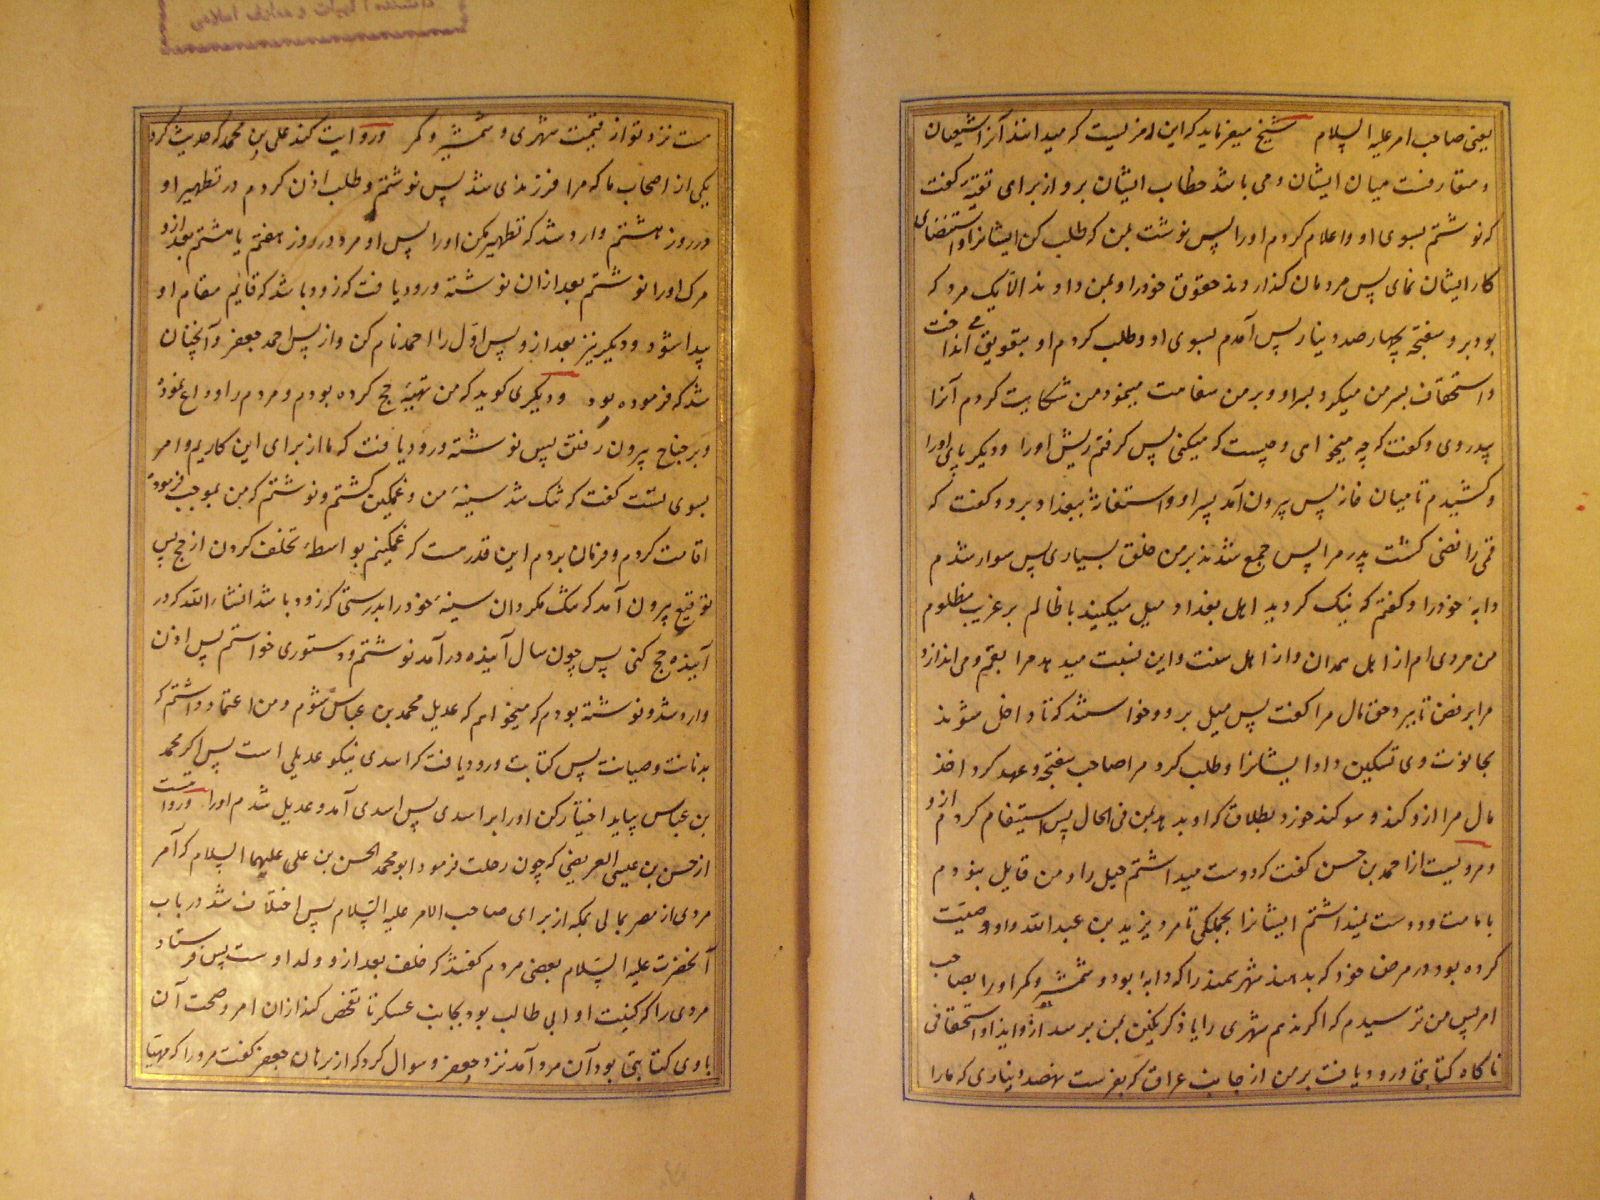 یعنی صاحب امر علیه السلام شیخ میفرماید که این رمزیست که میدانند آنرا شیعیان
و متعارفست میان ایشان و می باشد خطاب ایشان برو از برای تقیه گفت
که نوشتم بسوی او و اعلام کردم اورا پس نوشت بمن که طلب کن ایشانرا و استقضای
کار ایشان نمای پس مردمان گذاردند حقوق خودرا و بمن دادند الا یک مرد که
بود برو سفتجه بچهارصد دینار پس آمدم بسوی او و طلب کردم او بتعویق می انداخت
و استخفاف بسر من میکرد پسر او و بر من سفاهت مینمود من شکایت کردم آنرا
بپدر وی و گفت که چه میخواهی و چیست که میکنی پس گرفتم ریش اورا و دیگر پای اورا
و کشیدم تا میان خانه پس بیرون آمد پسر او و استغاثه ببغداد برد و گفت که
قمی رافضی کشت پدر مرا پس جمع شدند بر من خلق بسیاری پس سوار شدم
دابه خودرا و گفتم که نیک کردید اهل بغداد میل میکنید با ظالم بر غریب مظلوم
من مردی ام از اهل همدان و از اهل سنت و این نسبت میدهد مرا بقم و می اندازد
مرا برفض تا ببرد حق مال مرا گفت پس میل برو و خواستند که تا داخل شوند
بحانوت وی تسکین دادم ایشانرا و طلب کرد مرا صاحب سفتجه و عهد کرد اخذ
مال مرا ازو کند و سوگند خورد بطلاق که او بدهد بمن فی الحال پس استیفا کردم ازو
و مرویست از احمد بن حسن گفت که دوست میداشتم جبل را و من قایل نبودم
بامامت و دوست نمیداشتم ایشانرا بجملگی تا مرد یزید بن عبد الله و او وصیت
کرده بود در مرض خود که بدهند شهری سمند را که دابه او بود و شمشیر و کمر اورا بصاحب
امر پس من ترسیدم که اگر ندهم شهری را یا ذکریکین بمن برسد ازو ایذا و استخفافی
ناگاه کتابتی ورود یافت بر من از جانب عراق که بفرست هفصد دیناری که مارا
هست نزد تو از قیمت شهری و شمشیر و کمر و روایت کند علی بن محمد که حدیث کرد
یکی از اصحاب ما که مرا فرزندی شد پس نوشتم و طلب اذن کردم در تطهیر او
در روز هشتم وارد شد که تطهیر مکن اورا پس او مرد در روز هفتم یا هشتم بعد ازو
مرگ اورا نوشتم بعد از ان نوشته ورود یافت که زود باشد که قایم مقام او
پیدا شود و دیگر نیز بعد ازو پس اول را احمد نام کن و از پس احمد جعفر و آنچنان
شد که فرموده بود و دیگری گوید که من تهیه حج کرده بودم و مردم را وداع نمود
و بر جناح بیرون رفتن پس نوشته ورود یافت که ما از برای این کاریم و امر
بسوی تست گفت که تنگ شد سینه من و غمگین گشتم و نوشتم که من بموجب فرموده
اقامت کردم و فرمان بردم این قدر هست که غمگینم بواسطه تخلف کردن از حج پس
توقیع بیرون آمد که تنگ مگردان سینه خودرا بدرستی که زود باشد انشاء الله که در
آینده حج کنی پس چون سال آینده درآمد نوشتم و دستوری خواستم پس اذن
وارد شد و نوشته بودم که میخواهم که عدیل محمد بن عباس شوم و من اعتماد داشتم که
بدیانت و صیانت پس کتابت ورود یافت که اسدی نیکو عدیلی است پس اگر محمد
بن عباس بیاید اختیار مکن اورا بر اسدی پس اسدی آمد و عدیل شدم اورا و روایتست
از حسن بن عیسی العریضی که چون رحلت فرمود ابو محمد الحسن بن علی علیهما السلام که آمد
مردی از مصر بمالی بمکه از برای صاحب الامر علیه السلام پس اختلاف شد در باب
آنحضرت علیه السلام بعضی مردم گفتند که خلف بعد ازو ولد اوست پس فرستاد
مردی را که کنیت او ابی طالب بود بجانب عسکر تا تفحص کند از ان امر و صحت آن
با وی کتابتی بود آن مرد آمد نزد جعفر و سوال کرد که از برهان جعفر گفت مرورا که مهیا